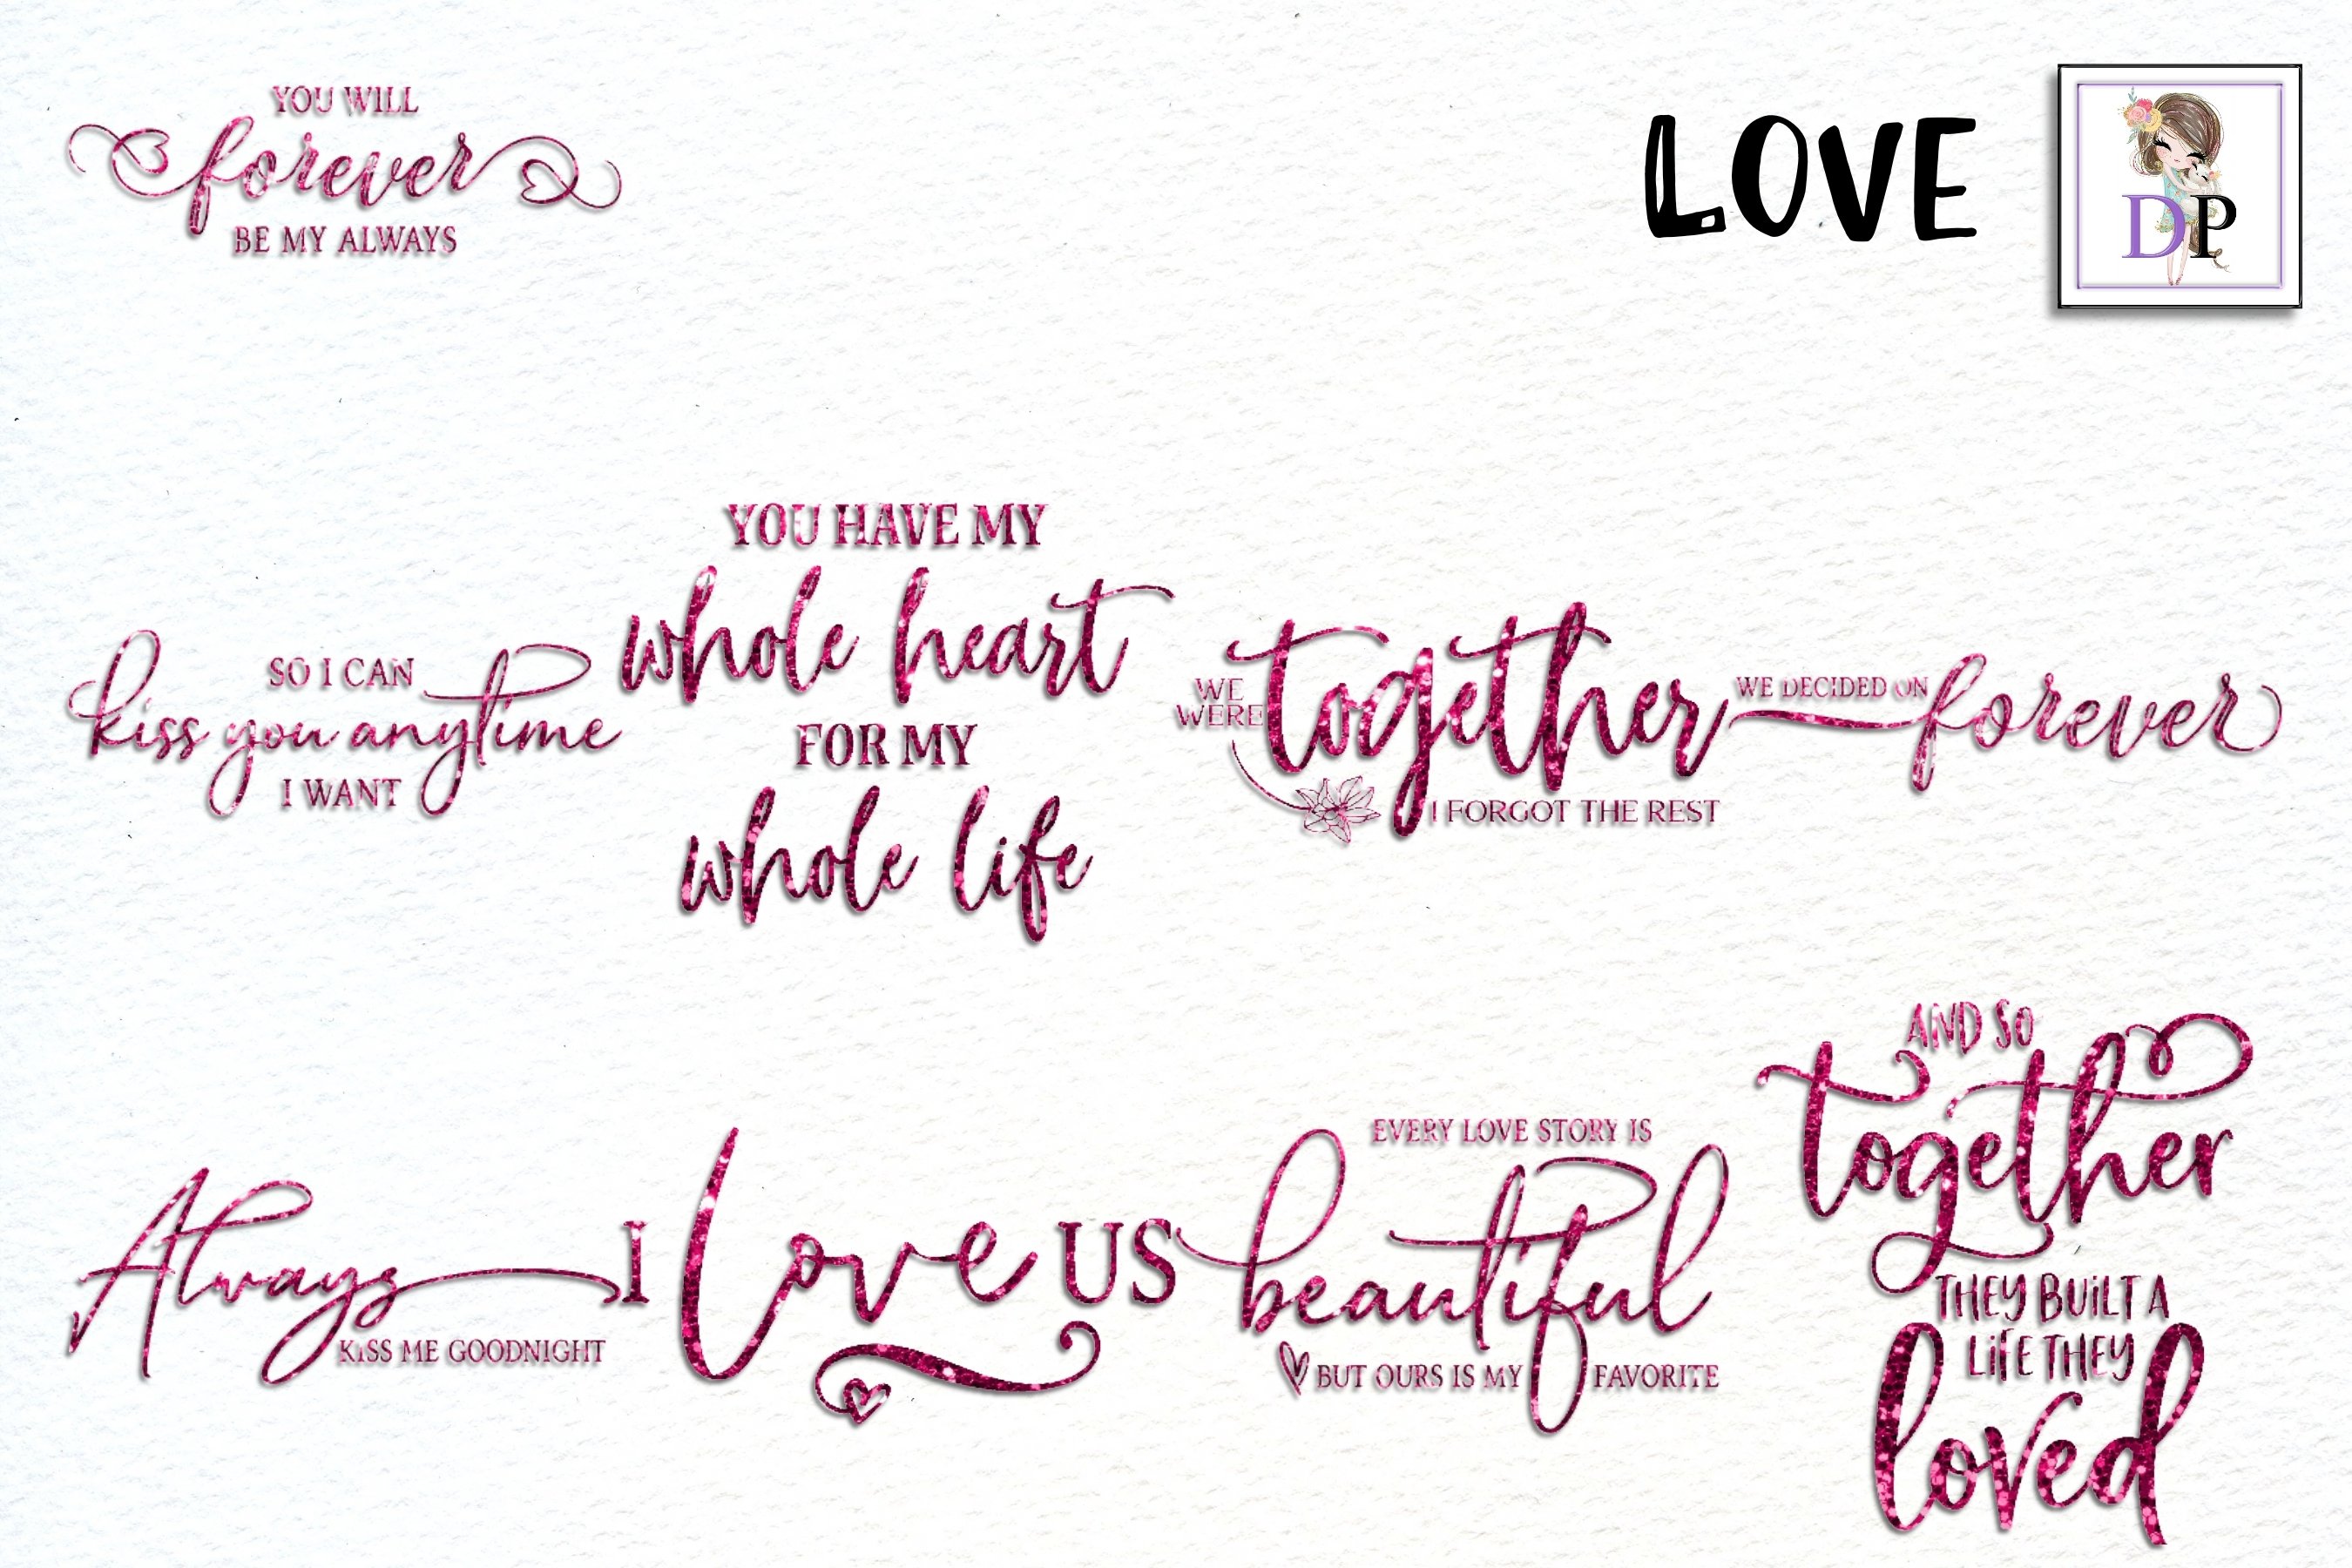 YOU WILL
forever
BE MY ALWAYS
LOVE
DP
SO I CAN
kiss you anytime
I WANT
YOU HAVE MY
whole heart
FOR MY
whole life
WE
WERE
together
I FORGOT THE REST
WE DECIDED ON
forever
Always
KISS ME GOODNIGHT
I love US
EVERY LOVE STORY IS
beautiful
BUT OURS IS MY FAVORITE
AND SO
together
THEY BUILT A
LIFE THEY
loved